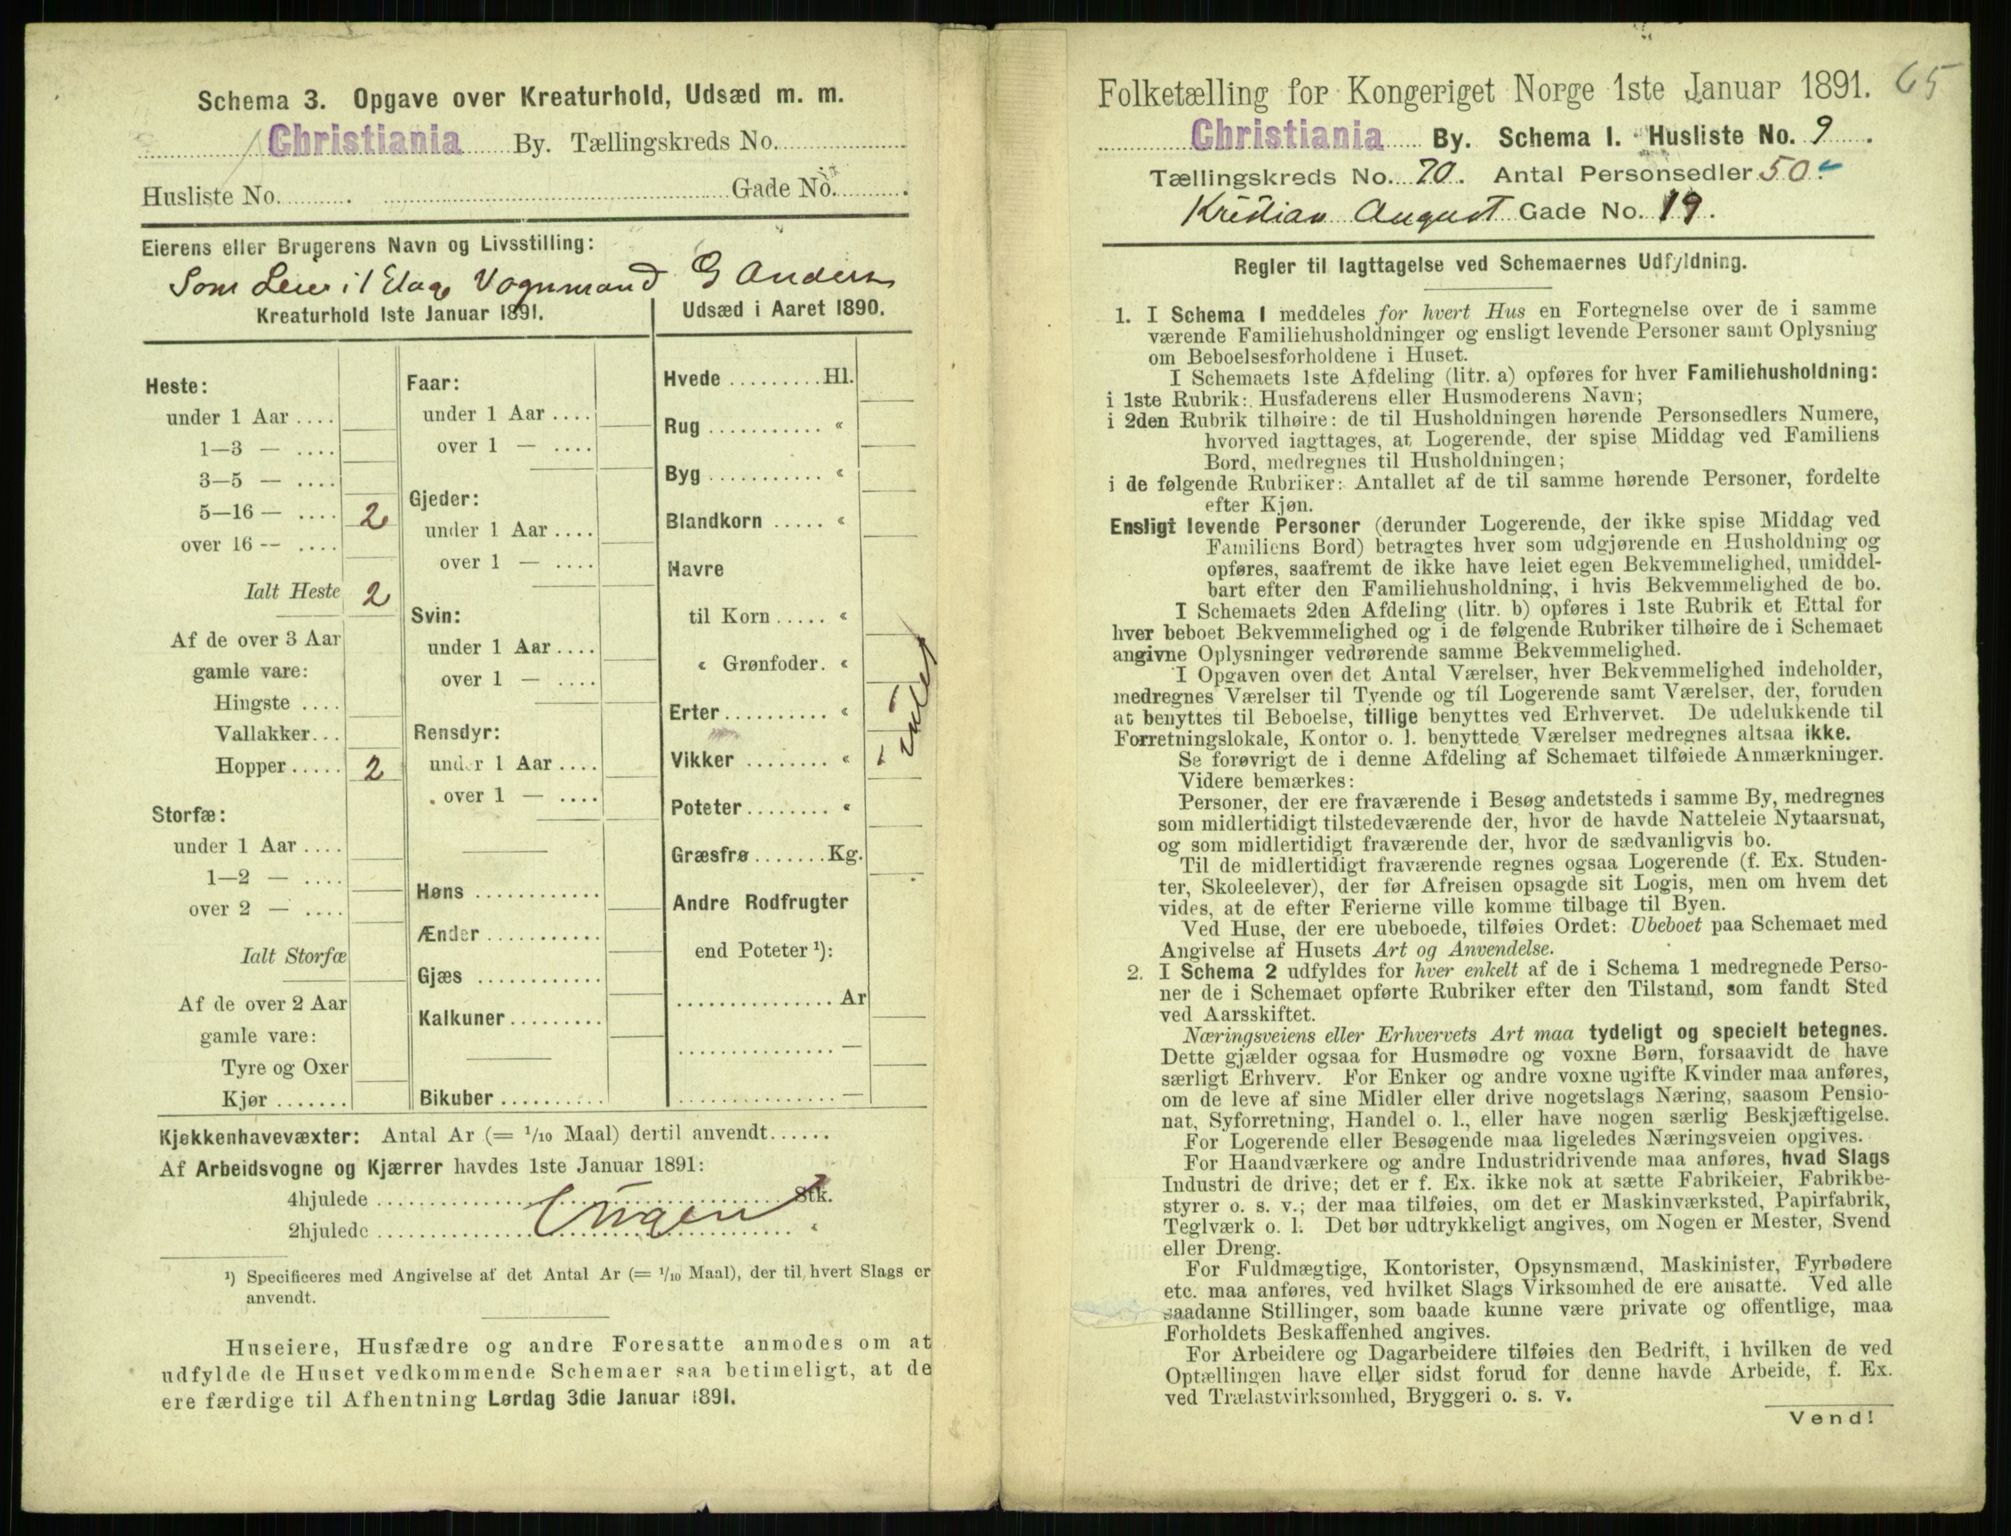 Schema 3. Opgave over Kreaturhold, Udsæd m. m.
Christiania By. Tællingskreds No.
Husliste No. Gade No.
Eierens eller Brugerens Navn og Livsstilling:
Som Leier i Vognmand G Anders
Kreaturhold 1ste Januar 1891.
Udsæd i Aaret 1890.
Heste:
under 1 Aar ....
1—3 — ....
3—5 — ....
5—16 — .... 2
over 16 — ....
Ialt Heste 2
Af de over 3 Aar
gamle vare:
Hingste ....
Vallakker...
Hopper ..... 2
Storfæ:
under 1 Aar ....
1—2 — ....
over 2 — ....
Ialt Storfæ
Af de over 2 Aar
gamle vare:
Tyre og Oxer
Kjør .......
Faar:
under 1 Aar ....
over 1 — ....
Gjeder:
under 1 Aar ....
over 1 — ....
Svin:
under 1 Aar ....
over 1 — ....
Rensdyr:
under 1 Aar ....
over 1 — ....
Høns ...........
Ænder ..........
Gjæs ...........
Kalkuner ........
Bikuber .........
Hvede ......... Hl.
Rug ........... «
Byg ........... «
Blandkorn ..... «
Havre
til Korn ..... «
« Grønfoder. «
Erter .......... «
Vikker ........ «
Poteter ........ «
Græsfrø ....... Kg.
Andre Rodfrugter
end Poteter ¹):
............... Ar
............... —
............... —
Kjøkkenhavevæxter: Antal Ar (= 1/10 Maal) dertil anvendt......
Af Arbeidsvogne og Kjærrer havdes 1ste Januar 1891:
4hjulede ........ Stk.
Ingen
2hjulede ........ «
¹) Specificeres med Angivelse af det Antal Ar (= 1/10 Maal), der til hvert Slags er
anvendt.
Huseiere, Husfædre og andre Foresatte anmodes om at
udfylde de Huset vedkommende Schemaer saa betimeligt, at de
ere færdige til Afhentning Lørdag 3die Januar 1891.
65
Folketælling for Kongeriget Norge 1ste Januar 1891.
Christiania By. Schema I. Husliste No. 9.
Tællingskreds No. 70. Antal Personsedler 50.
Kristian August Gade No. 19.
Regler til Iagttagelse ved Schemaernes Udfyldning.
1. I Schema I meddeles for hvert Hus en Fortegnelse over de i samme
værende Familiehusholdninger og ensligt levende Personer samt Oplysning
om Beboelsesforholdene i Huset.
I Schemaets 1ste Afdeling (litr. a) opføres for hver Familiehusholdning:
i 1ste Rubrik: Husfaderens eller Husmoderens Navn;
i 2den Rubrik tilhøire: de til Husholdningen hørende Personsedlers Numere,
hvorved iagttages, at Logerende, der spise Middag ved Familiens
Bord, medregnes til Husholdningen;
i de følgende Rubriker: Antallet af de til samme hørende Personer, fordelte
efter Kjøn.
Ensligt levende Personer (derunder Logerende, der ikke spise Middag ved
Familiens Bord) betragtes hver som udgjørende en Husholdning og
opføres, saafremt de ikke have leiet egen Bekvemmelighed, umiddel-
bart efter den Familiehusholdning, i hvis Bekvemmelighed de bo.
I Schemaets 2den Afdeling (litr. b) opføres i 1ste Rubrik et Ettal for
hver beboet Bekvemmelighed og i de følgende Rubriker tilhøire de i Schemaet
angivne Oplysninger vedrørende samme Bekvemmelighed.
I Opgaven over det Antal Værelser, hver Bekvemmelighed indeholder,
medregnes Værelser til Tyende og til Logerende samt Værelser, der, foruden
at benyttes til Beboelse, tillige benyttes ved Erhvervet. De udelukkende til
Forretningslokale, Kontor o. l. benyttede Værelser medregnes altsaa ikke.
Se forøvrigt de i denne Afdeling af Schemaet tilføiede Anmærkninger.
Videre bemærkes:
Personer, der ere fraværende i Besøg andetsteds i samme By, medregnes
som midlertidigt tilstedeværende der, hvor de havde Natteleie Nytaarsnat,
og som midlertidigt fraværende der, hvor de sædvanligvis bo.
Til de midlertidigt fraværende regnes ogsaa Logerende (f. Ex. Studen-
ter, Skoleelever), der før Afreisen opsagde sit Logis, men om hvem det
vides, at de efter Ferierne ville komme tilbage til Byen.
Ved Huse, der ere ubeboede, tilføies Ordet: Ubeboet paa Schemaet med
Angivelse af Husets Art og Anvendelse.
2. I Schema 2 udfyldes for hver enkelt af de i Schema 1 medregnede Perso-
ner de i Schemaet opførte Rubriker efter den Tilstand, som fandt Sted
ved Aarsskiftet.
Næringsveiens eller Erhvervets Art maa tydeligt og specielt betegnes.
Dette gjælder ogsaa for Husmødre og voxne Børn, forsaavidt de have
særligt Erhverv. For Enker og andre voxne ugifte Kvinder maa anføres,
om de leve af sine Midler eller drive nogetslags Næring, saasom Pensio-
nat, Syforretning, Handel o. l., eller have nogen særlig Beskjæftigelse.
For Logerende eller Besøgende maa ligeledes Næringsveien opgives.
For Haandværkere og andre Industridrivende maa anføres, hvad Slags
Industri de drive; det er f. Ex. ikke nok at sætte Fabrikeier, Fabrikbe-
styrer o. s. v.; der maa tilføies, om det er Maskinværksted, Papirfabrik,
Teglværk o. l. Det bør udtrykkeligt angives, om Nogen er Mester, Svend
eller Dreng.
For Fuldmægtige, Kontorister, Opsynsmænd, Maskinister, Fyrbødere
etc. maa anføres, ved hvilket Slags Virksomhed de ere ansatte. Ved alle
saadanne Stillinger, som baade kunne være private og offentlige, maa
Forholdets Beskaffenhed angives.
For Arbeidere og Dagarbeidere tilføies den Bedrift, i hvilken de ved
Optællingen have eller sidst forud for denne havde Arbeide, f. Ex.
ved Trælastvirksomhed, Bryggeri o. s. v.
Vend!